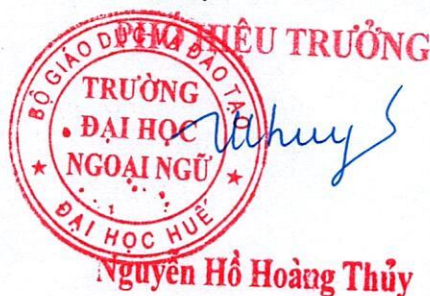 PHÓ HIỆU TRƯỞNG
BỘ GIÁO DỤC VÀ ĐÀO TẠO
TRƯỜNG
ĐẠI HỌC
NGOẠI NGỮ
ĐẠI HỌC HUẾ
Nguyễn Hồ Hoàng Thủy